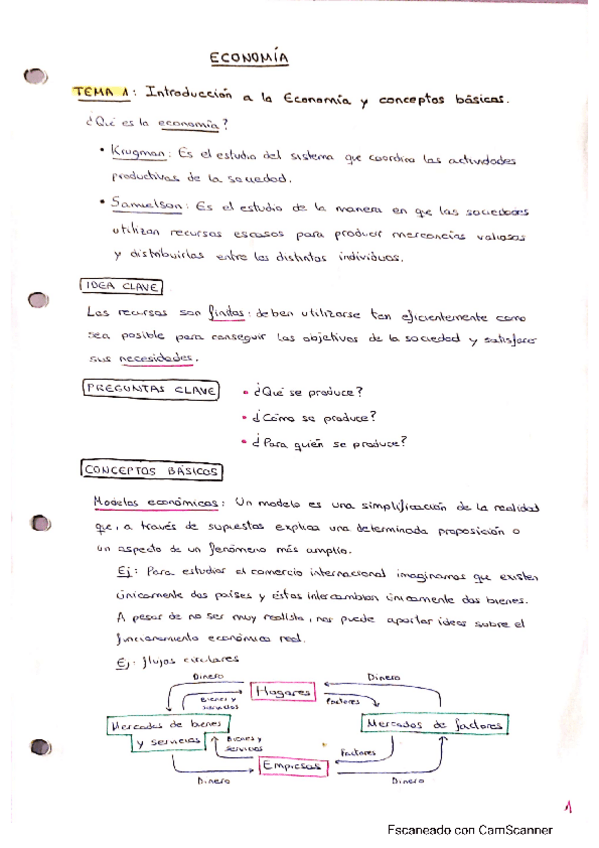 ECONOMÍA
TEMA 1: Introducción a la Economía y conceptos básicos.
¿Qué es la economía?
• Krugman: Es el estudio del sistema que coordina las actividades
productivas de la sociedad.
• Samuelson: Es el estudio de la manera en que las sociedades
utilizan recursos escasos para producir mercancías valiosas
y distribuirlas entre los distintos individuos.
IDEA CLAVE
Los recursos son finitos: deben utilizarse tan eficientemente como
sea posible para conseguir los objetivos de la sociedad y satisfacer
sus necesidades.
PREGUNTAS CLAVE
• ¿Qué se produce?
• ¿Cómo se produce?
• ¿Para quién se produce?
CONCEPTOS BÁSICOS
Modelos económicos: Un modelo es una simplificación de la realidad
que, a través de supuestos explica una determinada proposición o
un aspecto de un fenómeno más amplio.
Ej: Para estudiar el comercio internacional imaginamos que existen
únicamente dos países y éstos intercambian únicamente dos bienes.
A pesar de no ser muy realista, nos puede aportar ideas sobre el
funcionamiento económico real.
Ej: flujos circulares
Dinero Dinero
Hogares
Bienes y
servicios
Factores
Mercados de bienes
y servicios
Mercados de factores
Bienes y
servicios
Factores
Empresas
Dinero Dinero
1
Escaneado con CamScanner